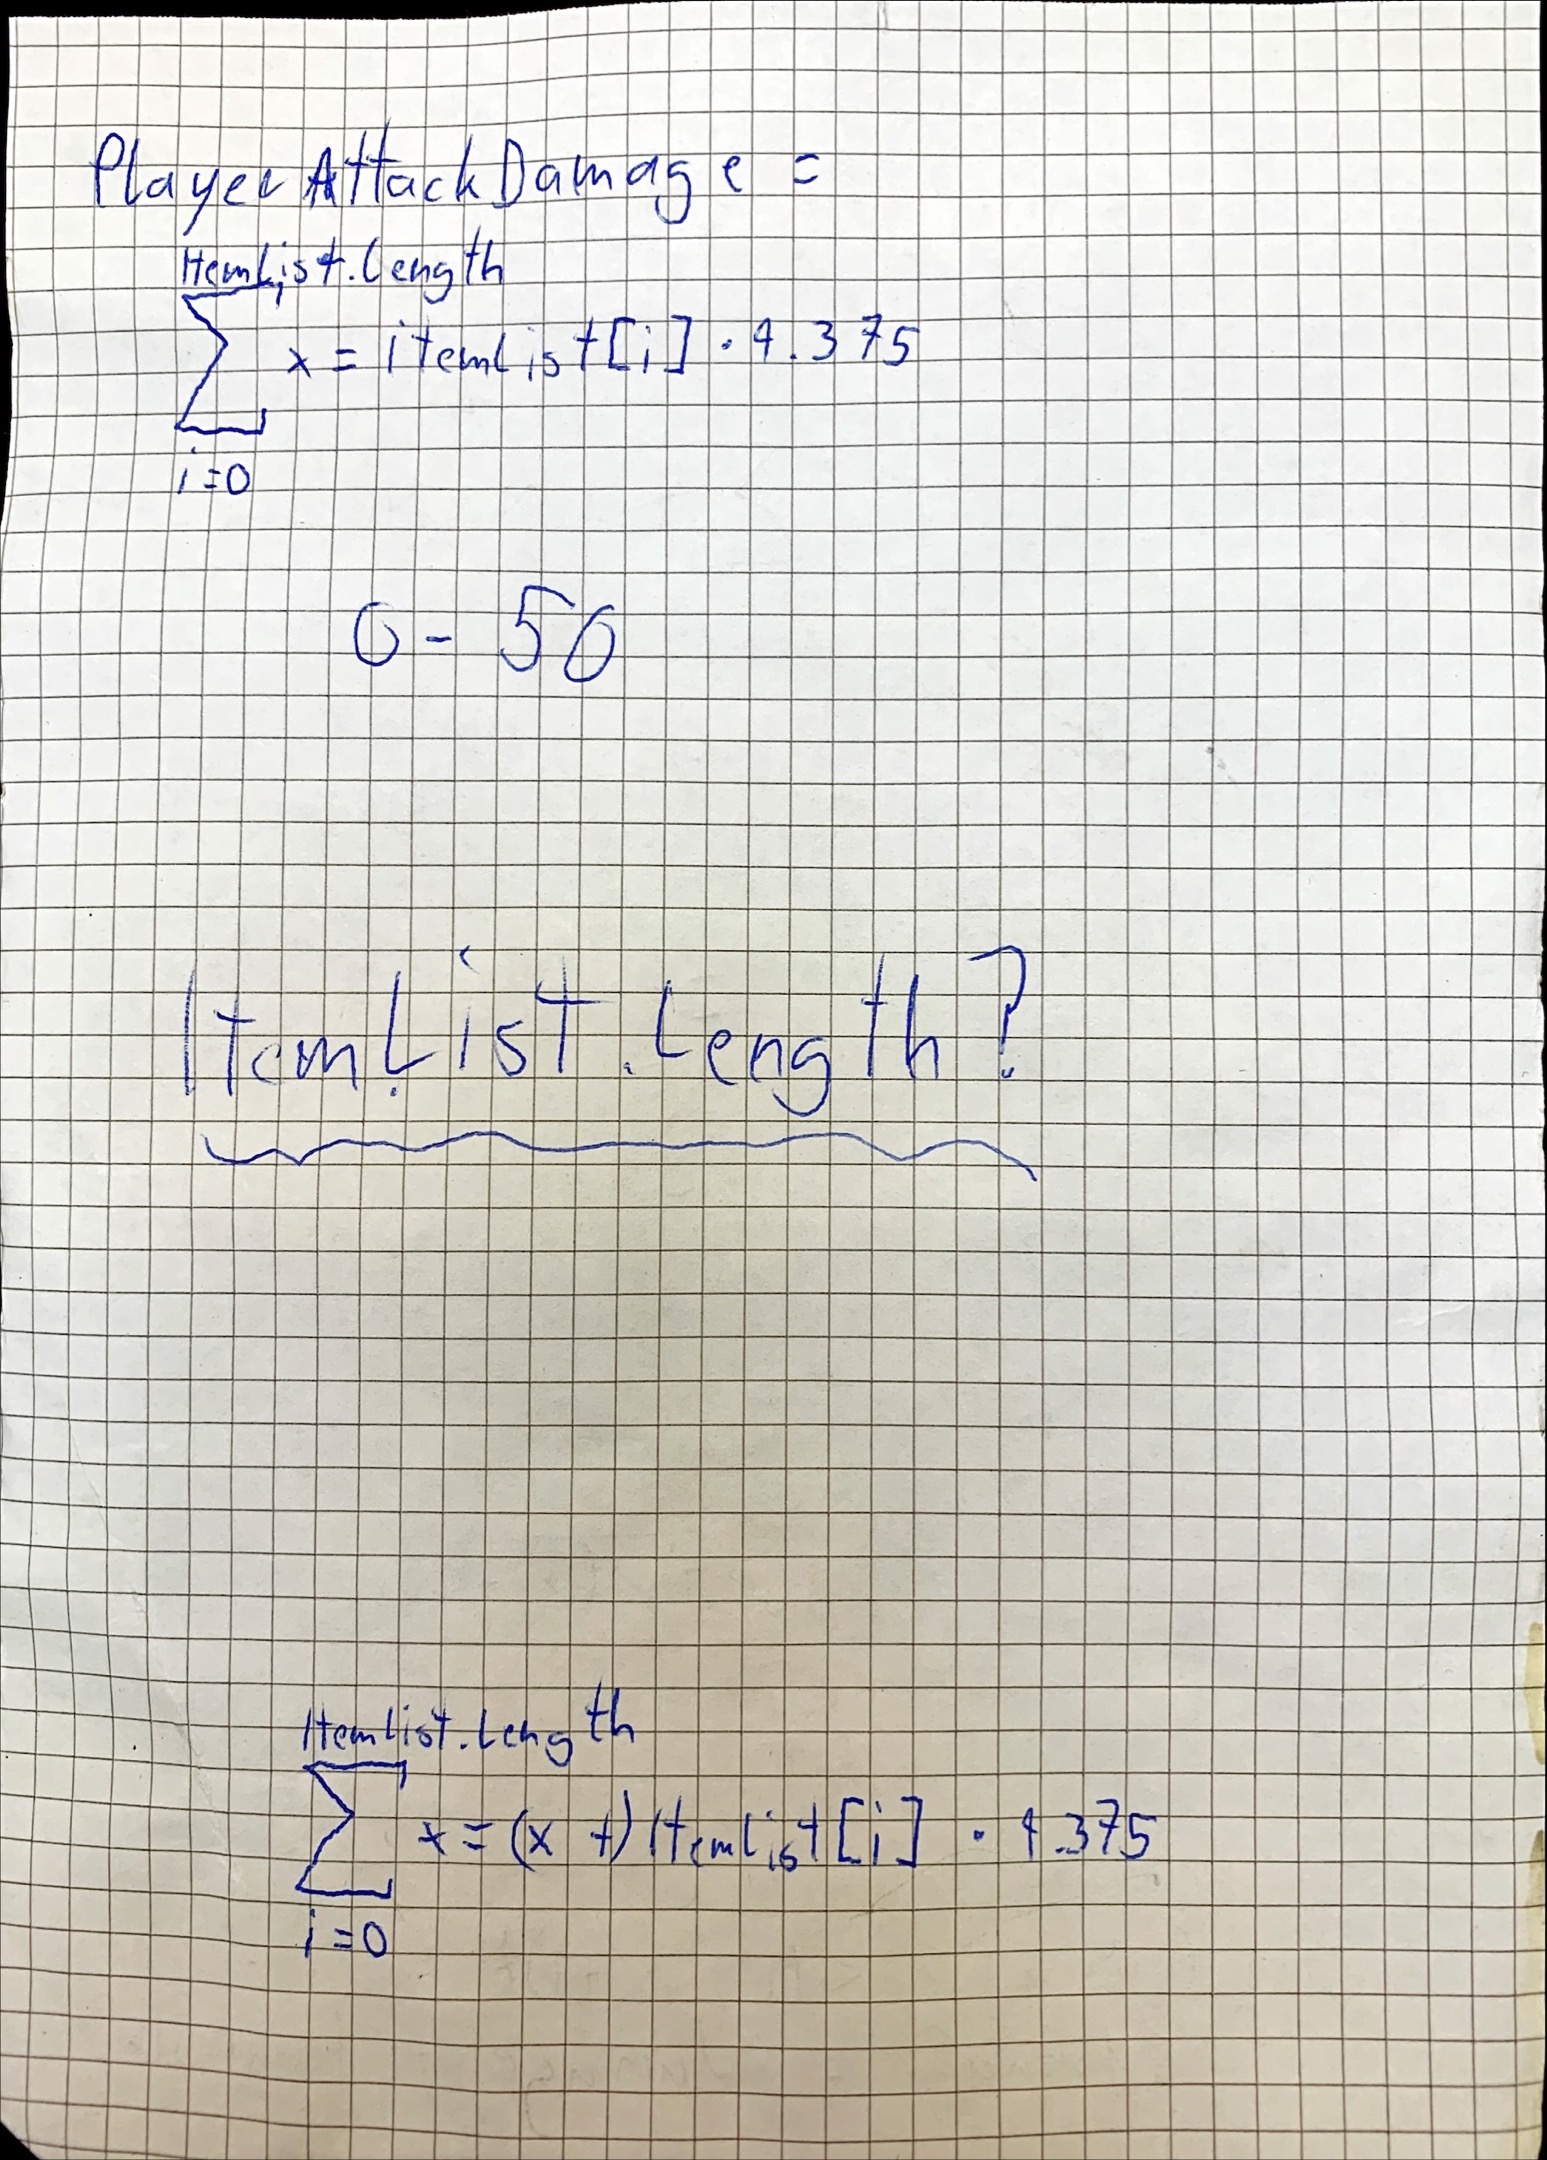 PlayerAttackDamage =
ItemList.length
∑ x = itemList[i] · 4.375
i=0
0 - 50
ItemList.Length?
ItemList.Length
∑ x = (x +) ItemList[i] · 4.375
i=0